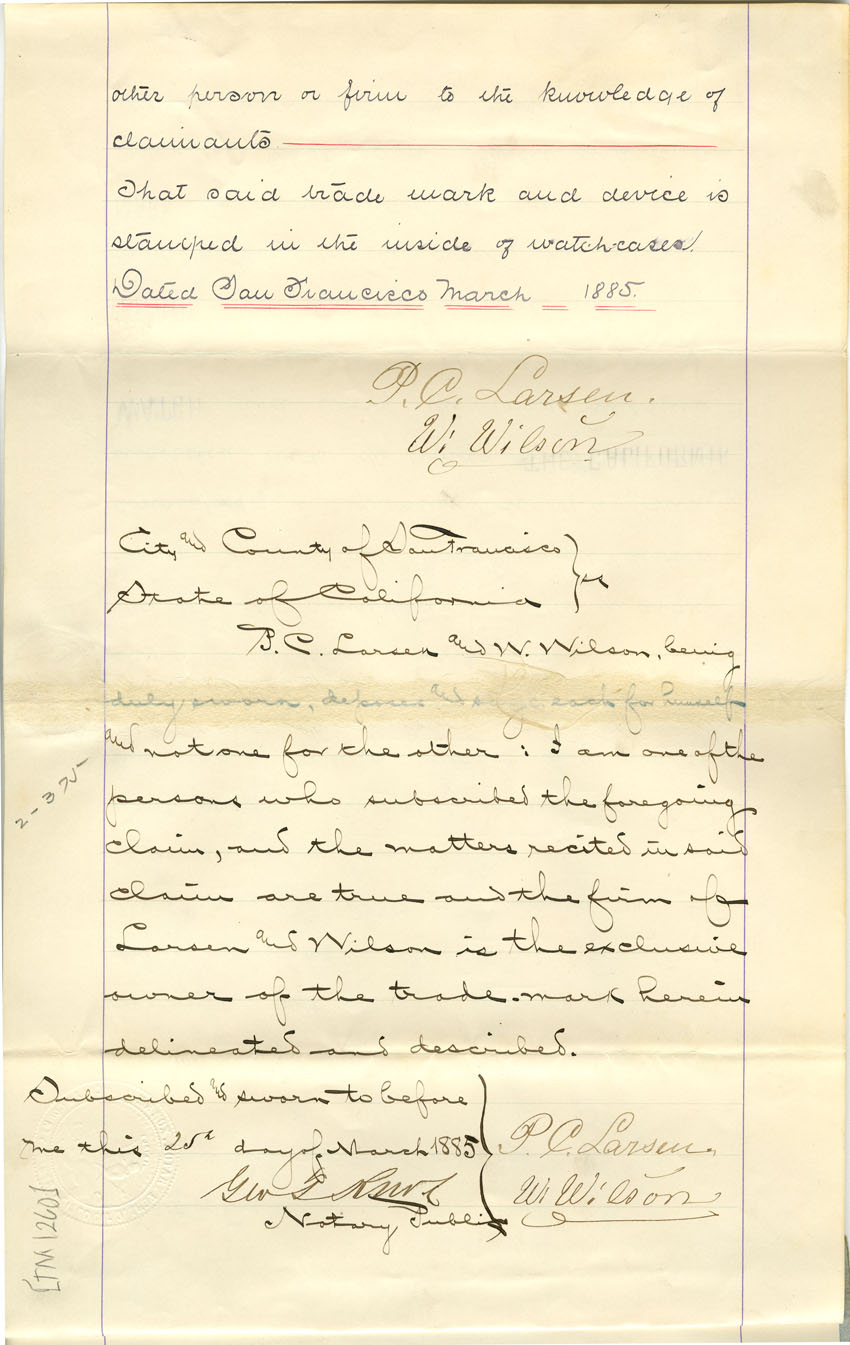 other person or firm to the knowledge of
claimants
That said trade mark and device is
stamped in the inside of watch-cases.
Dated San Francisco March 1885.
P. C. Larsen.
W. Wilson
City and County of San Francisco
State of California } ss
P. C. Larsen and W. Wilson, being
duly sworn, deposes and says each for himself
and not one for the other: I am one of the
persons who subscribed the foregoing
claim, and the matters recited in said
claim are true and the firm of
Larsen and Wilson is the exclusive
owner of the trade-mark herein
delineated and described.
Subscribed and sworn to before
me this 25th day of March 1885
Geo T Knox
Notary Public
P. C. Larsen.
W. Wilson
2-375
[TM 1260]